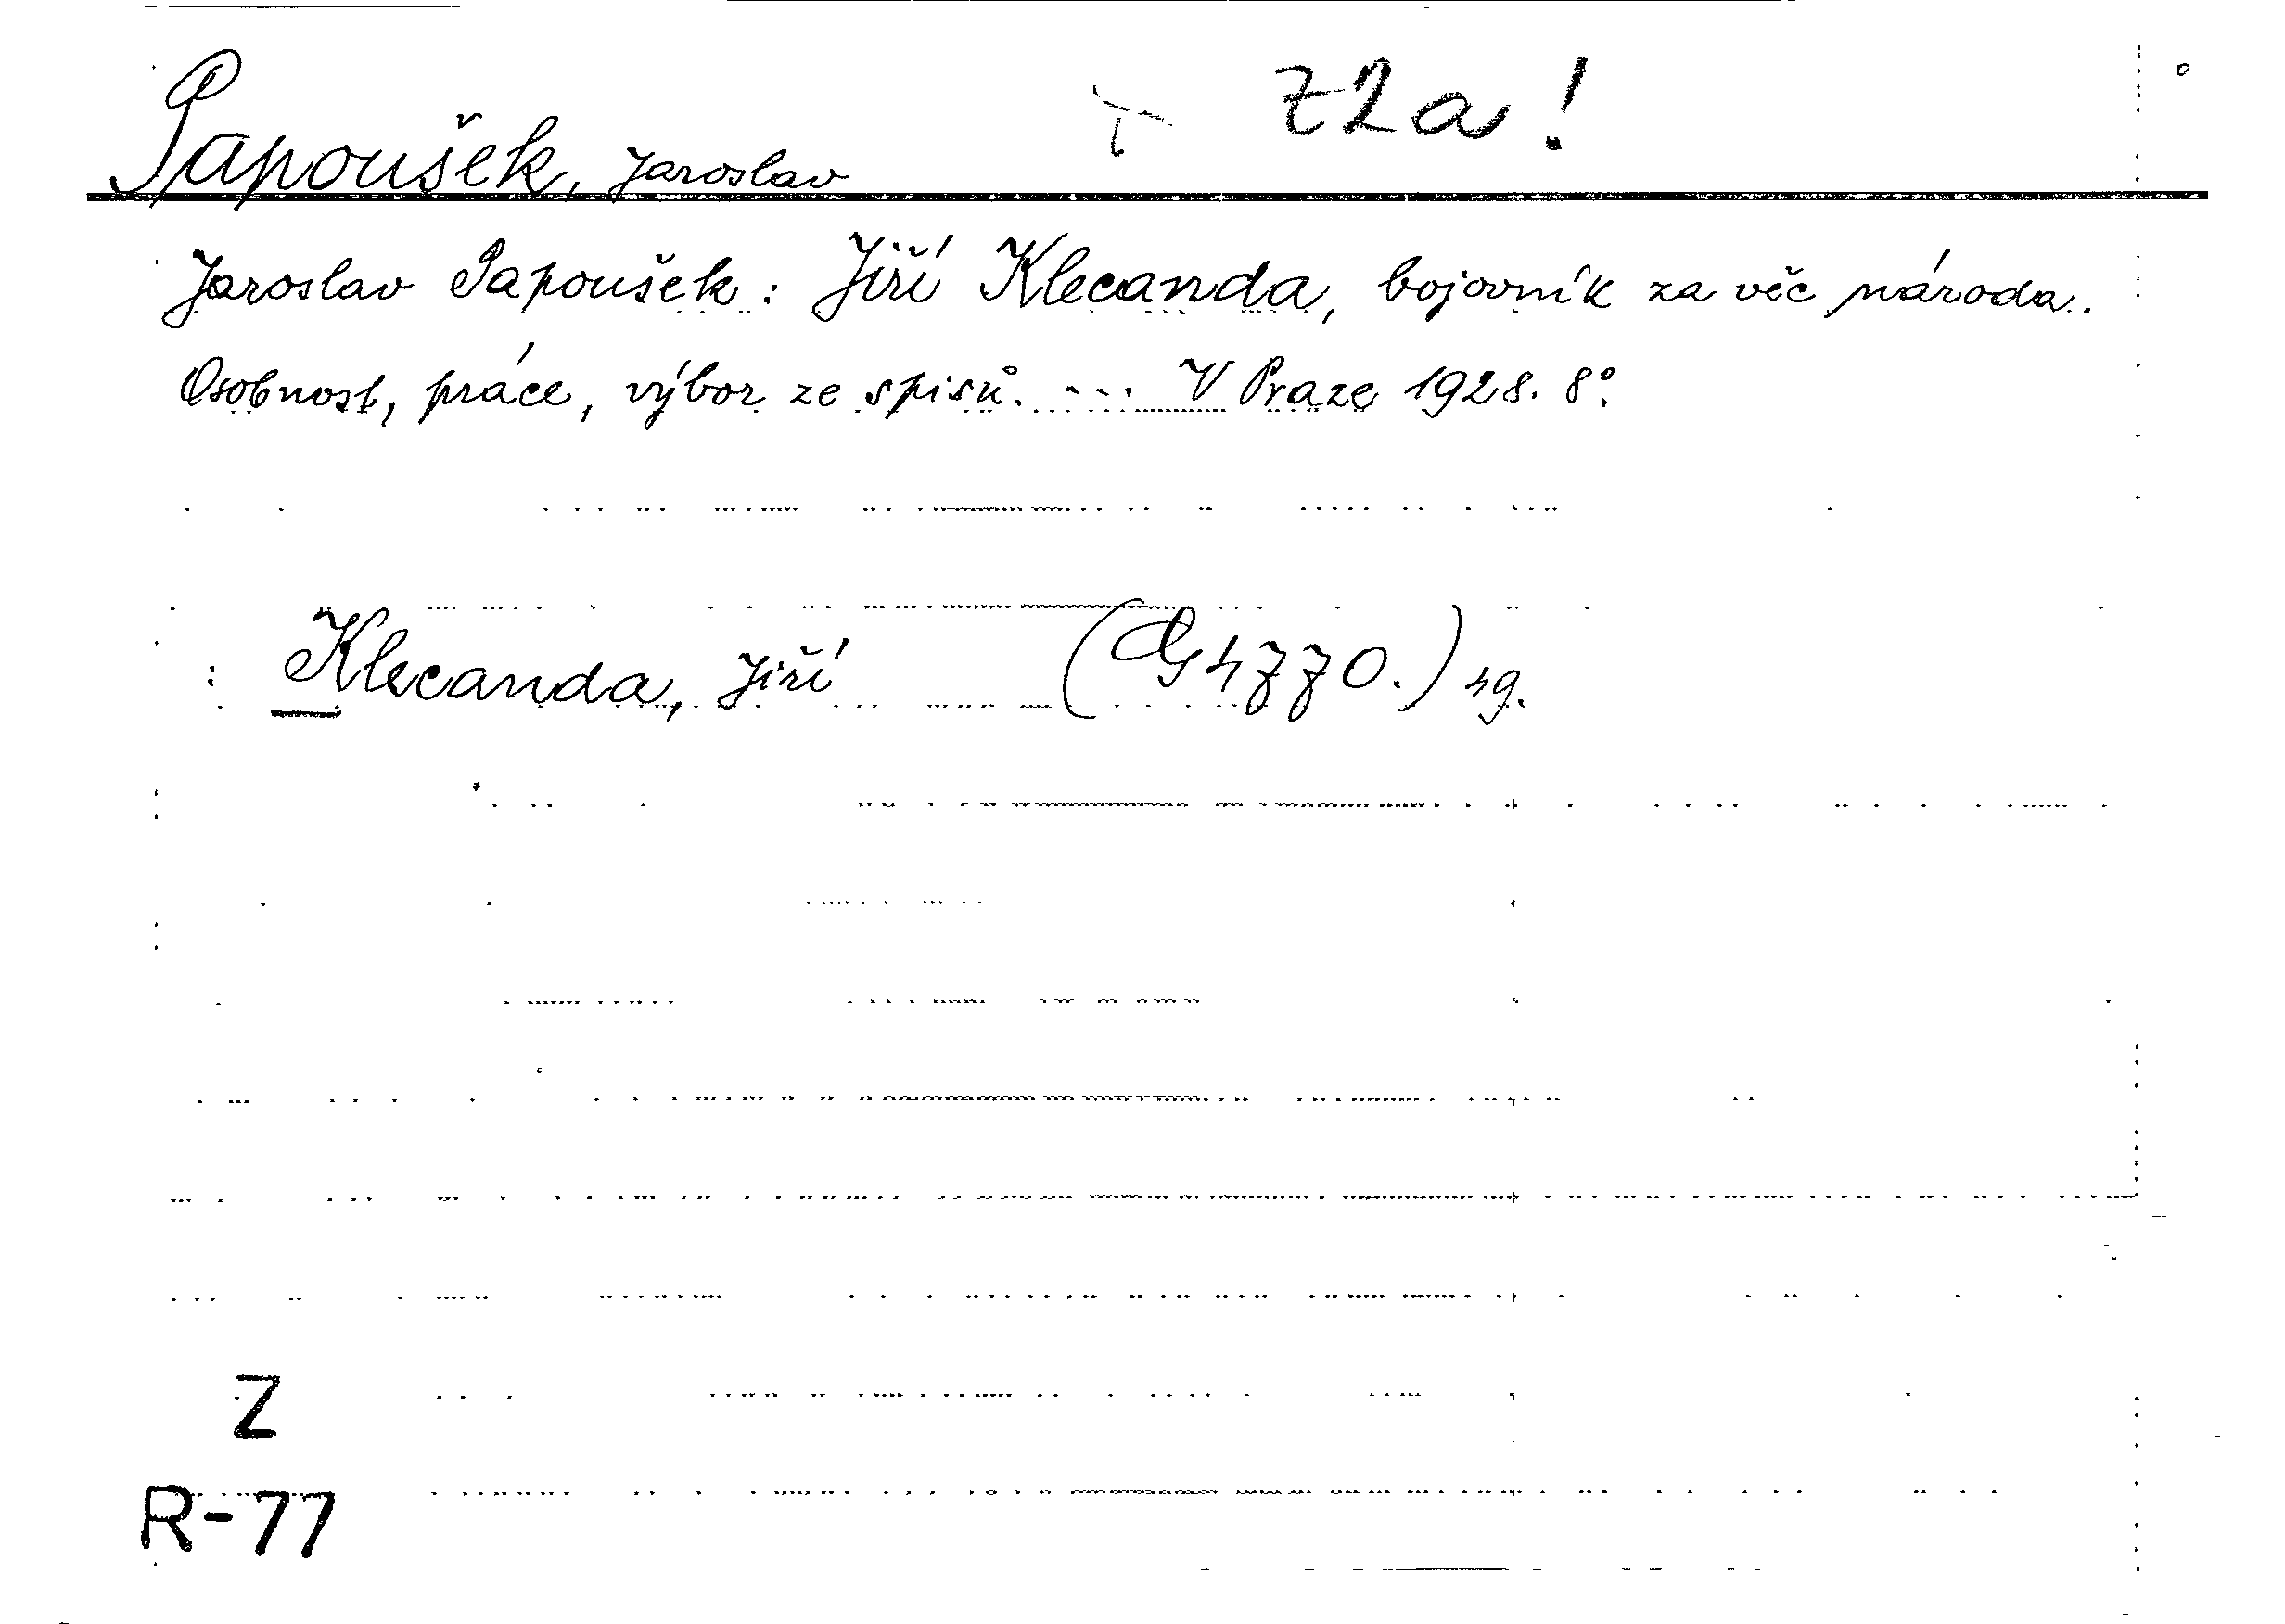 Papoušek, Jaroslav
Jaroslav Papoušek: Jiří Klecanda, bojovník za věč národa.
Osobnost, práce, výbor ze spisů. --- V Praze 1928. 8°.
: Klecanda, Jiří
Z
R-77